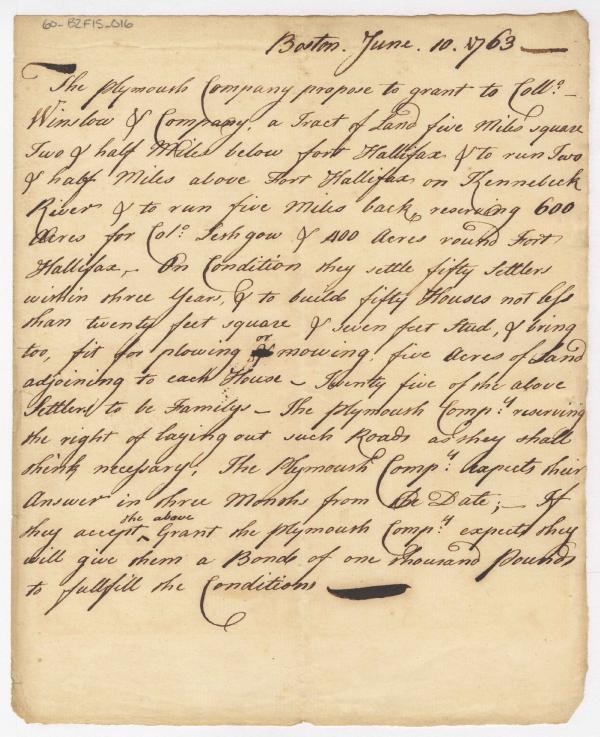 60-B2F15-016
Boston. June. 10. 1763
The Plymouth Company propose to grant to Coll.o
Winslow & Company, a Tract of Land five Miles square
Two & half Miles below fort Hallifax & to run Two
& half Miles above Fort Hallifax on Kennebeck
River & to run five Miles back, reserving 600
Acres for Col.o Lithgow & 400 Acres round Fort
Hallifax, - On Condition they settle fifty Settlers
within three Years, & to build fifty Houses not less
than twenty feet square & seven feet Stud, & bring
too, fit for plowing or mowing, five Acres of Land
adjoining to each House - Twenty five of the above
Settlers to be Familys - The Plymouth Comp.y reserving
the right of laying out such Roads as they shall
think necessary, The Plymouth Comp.y expects their
Answer in three Months from the Date; - If
they accept the above Grant the Plymouth Comp.y expects they
will give them a Bond of one thousand Pounds
to fullfill the Conditions